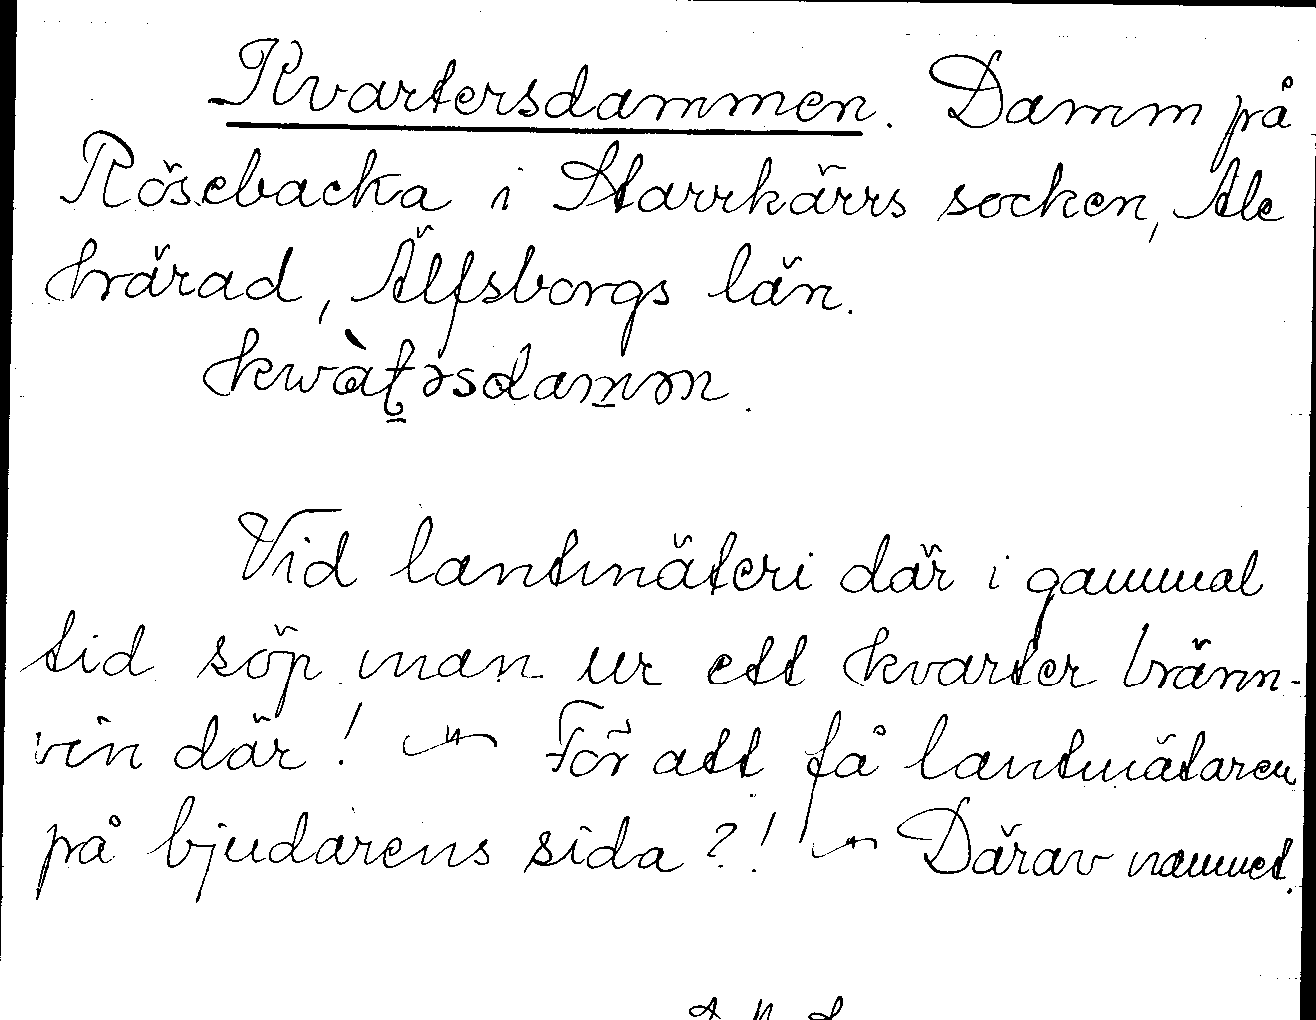 Kvartersdammen. Damm på
Rösebacka i Starrkärrs socken, Ale
härad, Älfsborgs län.
kwàt̲əsdam̲m.
Vid lantmäteri där i gammal
tid söp man ur ett kvarter bränn-
vin där! — För att få lantmätaren
på bjudarens sida?! — Därav namnet.